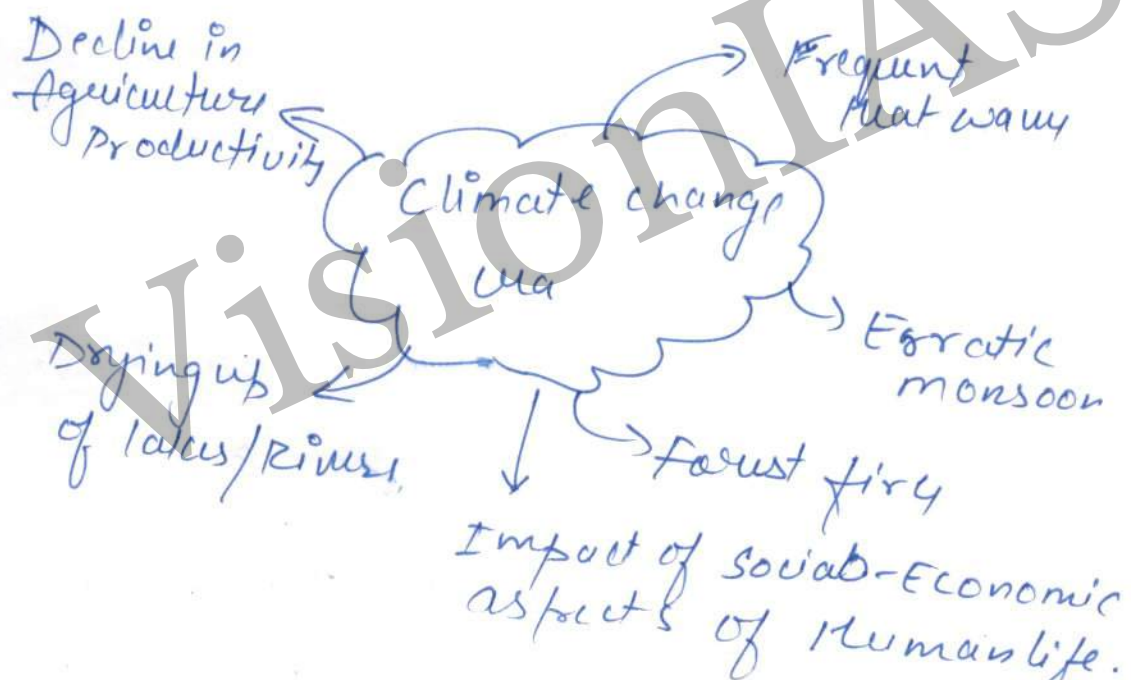 Decline in
Agriculture
Productivity
Frequent
Heat waves
Climate change
era
Erratic
monsoon
Drying up
of lakes/Rivers
Forest fires
Impact of Social-Economic
aspects of Human life.
VisionIAS